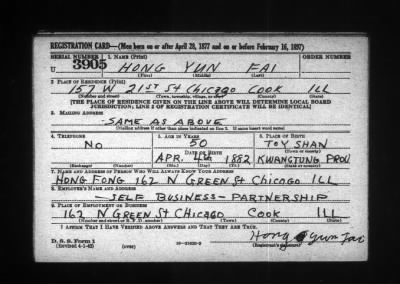 REGISTRATION CARD—(Men born on or after April 28, 1877 and on or before February 16, 1897)
SERIAL NUMBER 1. NAME (Print) ORDER NUMBER
U 3905 HONG YUN FAI
(First) (Middle) (Last)
2. PLACE OF RESIDENCE (Print)
157 W 21ST St CHICAGO COOK ILL
(Number and street) (Town, township, village, or city) (County) (State)
[THE PLACE OF RESIDENCE GIVEN ON THE LINE ABOVE WILL DETERMINE LOCAL BOARD
JURISDICTION; LINE 2 OF REGISTRATION CERTIFICATE WILL BE IDENTICAL]
3. MAILING ADDRESS
SAME AS ABOVE
[Mailing address if other than place indicated on line 2. If same insert word same]
4. TELEPHONE 5. AGE IN YEARS 6. PLACE OF BIRTH
NO 50 TOY SHAN
DATE OF BIRTH (Town or county)
APR. 4th 1882 KWANGTUNG PROV
(Exchange) (Number) (Mo.) (Day) (Yr.) (State or country)
7. NAME AND ADDRESS OF PERSON WHO WILL ALWAYS KNOW YOUR ADDRESS
HONG FONG 162 N GREEN St CHICAGO ILL
8. EMPLOYER'S NAME AND ADDRESS
SELF BUSINESS — PARTNERSHIP
9. PLACE OF EMPLOYMENT OR BUSINESS
162 N GREEN St CHICAGO COOK ILL
(Number and street or R. F. D. number) (Town) (County) (State)
I AFFIRM THAT I HAVE VERIFIED ABOVE ANSWERS AND THAT THEY ARE TRUE.
D. S. S. Form 1 Hong Yun Fai
(Revised 4-1-42) (over) (Registrant's signature)